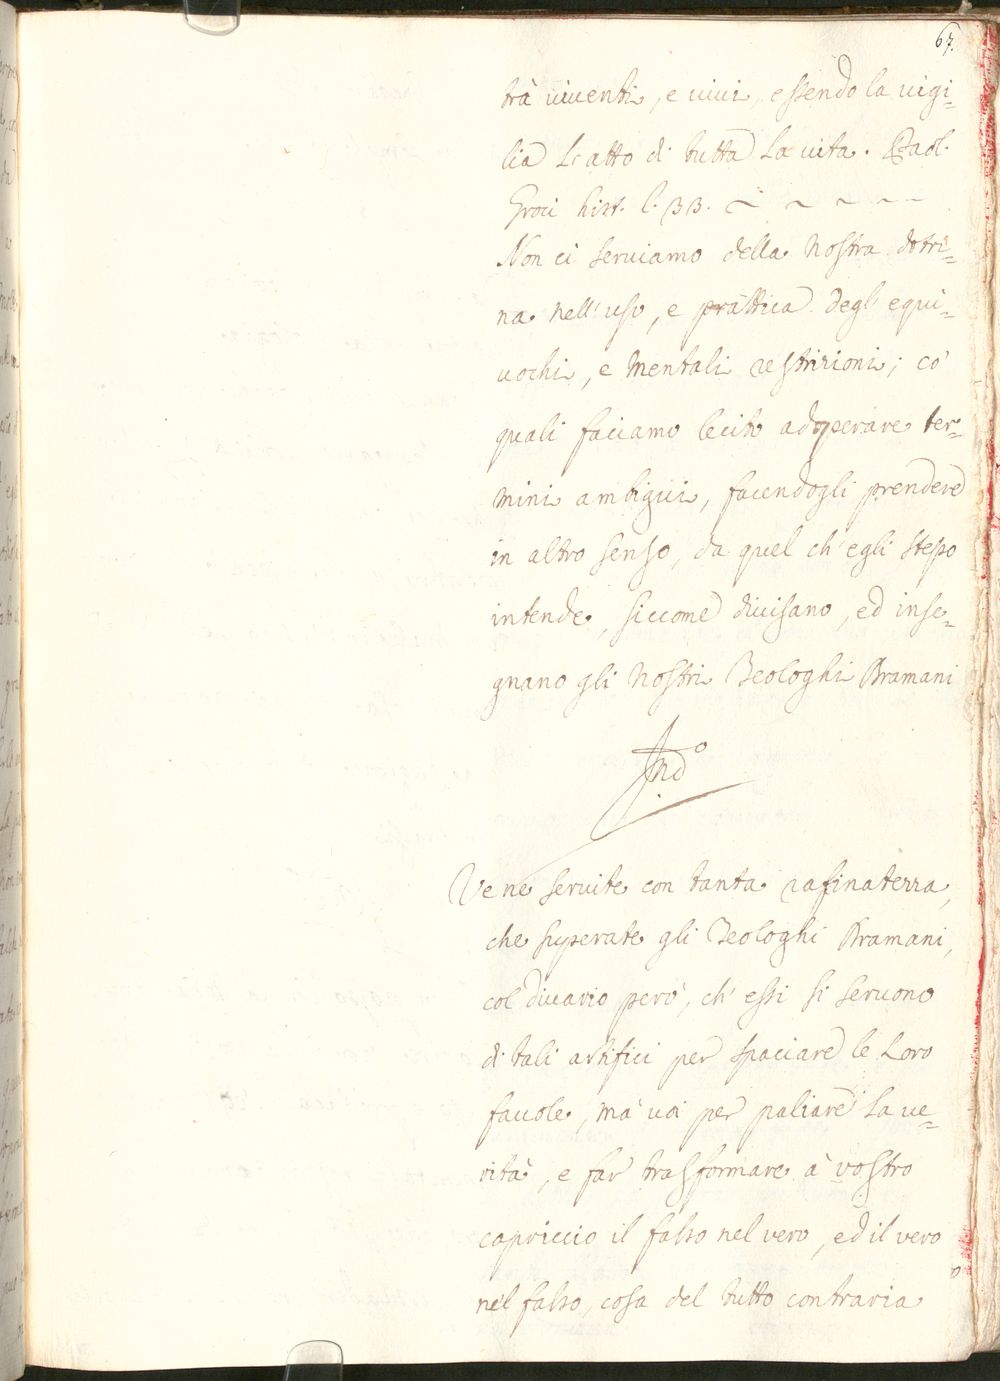 67.
trà viventi, e vivi, essendo la vigi=
lia l'atto di tutta la vita. Paol.
Groci hist. l. 33. ~ ~ ~ ~ ~
Non ci serviamo della nostra dotri=
na nell'uso, e prattica degl'equi=
vochi, e mentali restrizioni; co'
quali faciamo lecito adoperare ter=
mini ambigui, facendogli prendere
in altro senso, da quel ch'egli stesso
intende, siccome divisano, ed inse=
gnano gli nostri Teologhi Bramani
Ind.o
Ve ne servite con tanta rafinatezza,
che superate gli Teologhi Bramani,
col divario però, ch'essi si servono
di tali artifici per spaciare le loro
favole, mà voi per paliare la ve=
rità, e far trasformare à vostro
capriccio il falso nel vero, ed il vero
nel falso, cosa del tutto contraria